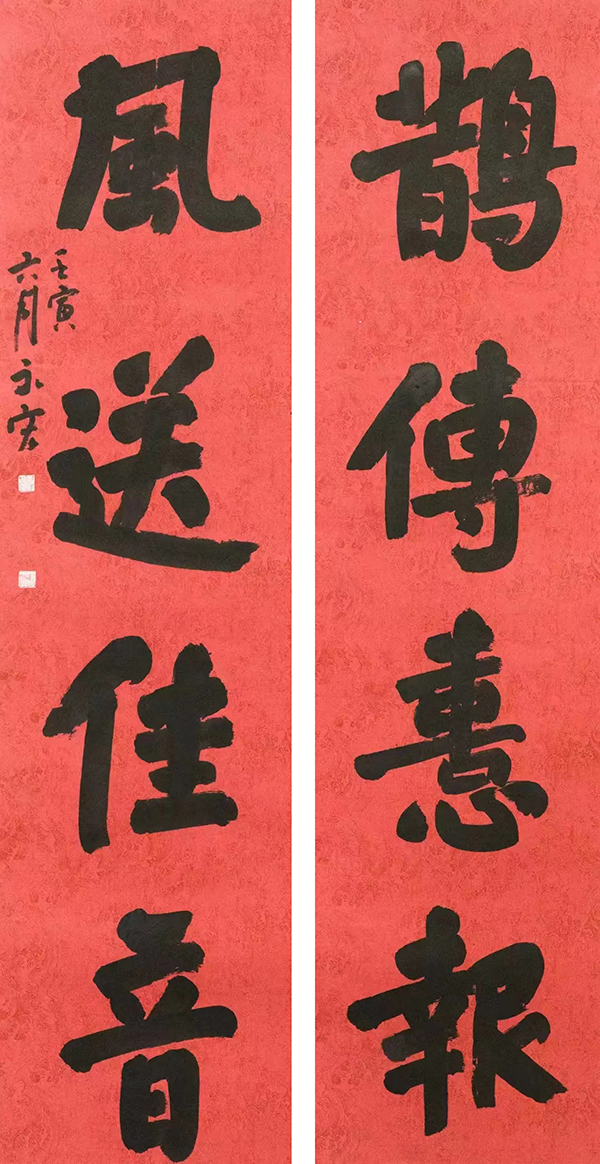 鵲傳惠報
風送佳音
壬寅
六月永宏